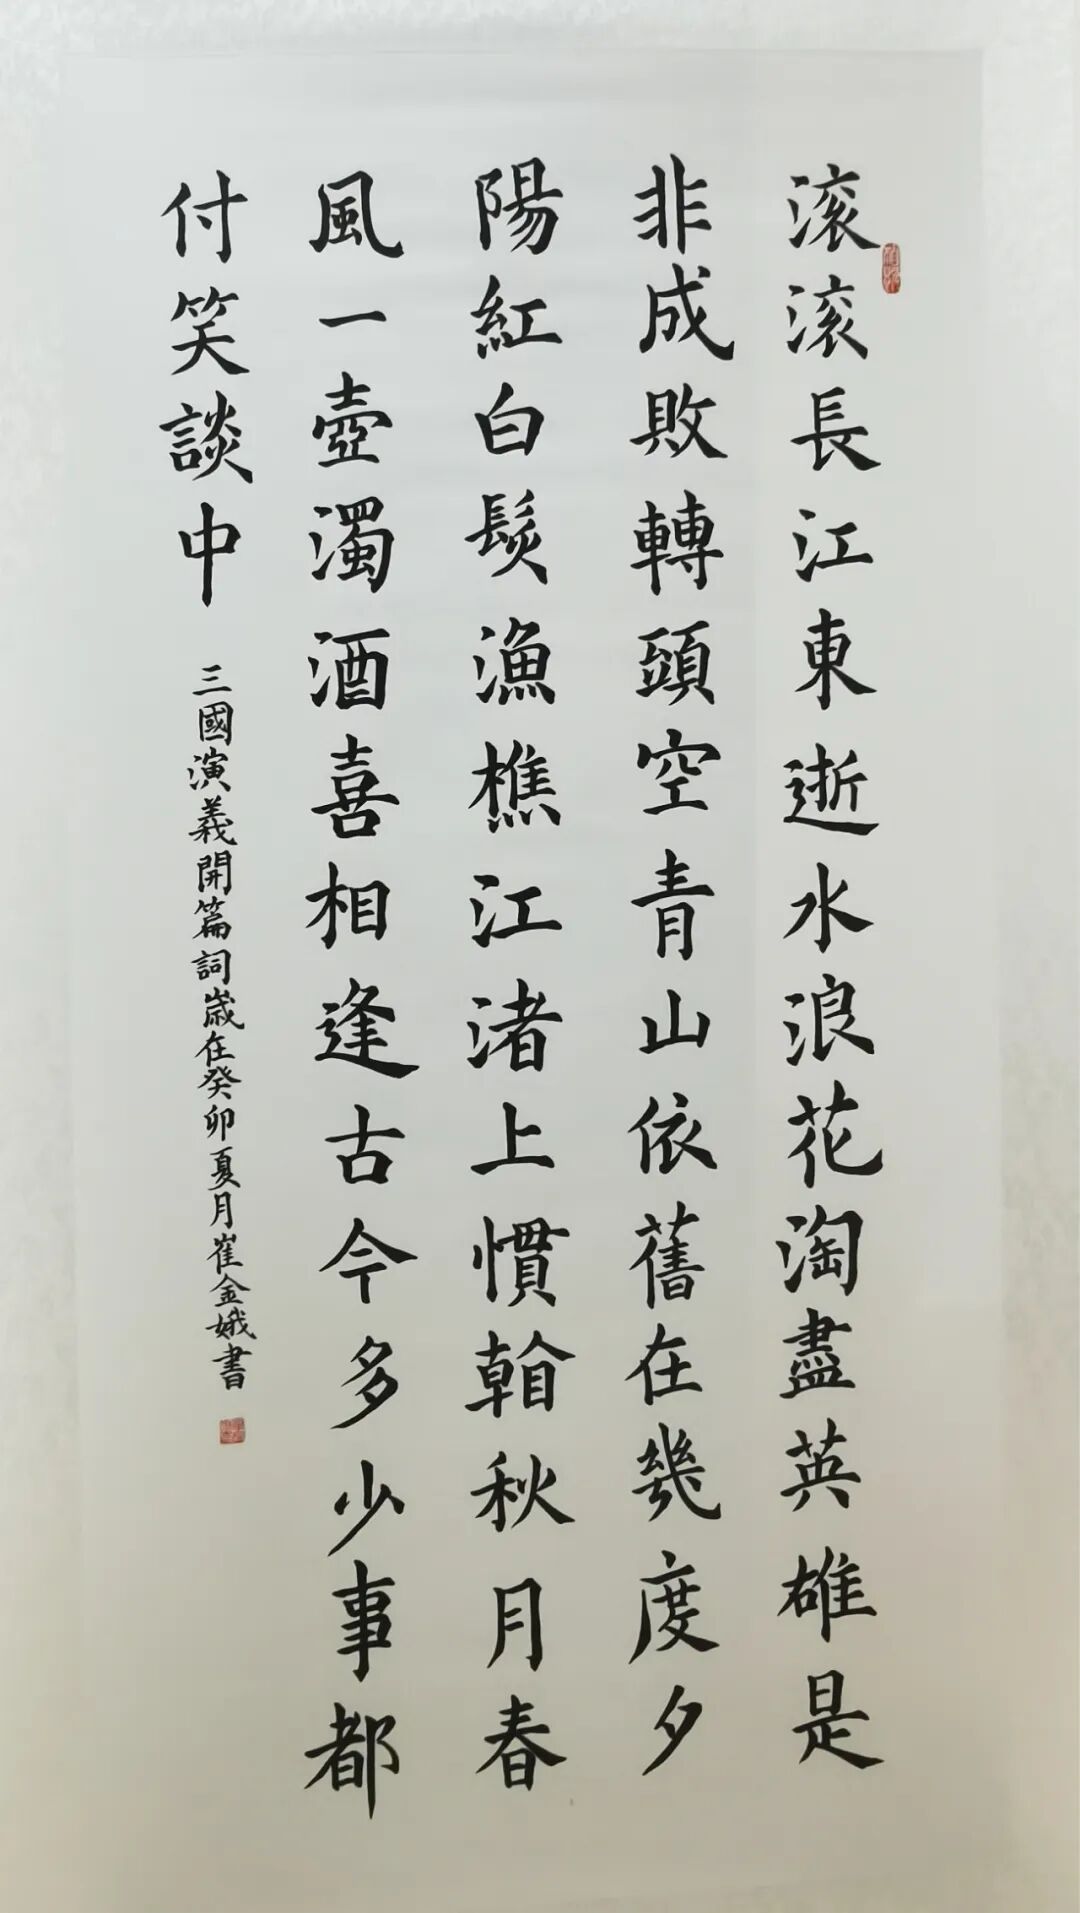 滚滚長江東逝水浪花淘盡英雄是
非成敗轉頭空青山依舊在幾度夕
陽紅白髮漁樵江渚上慣看秋月春
風一壺濁酒喜相逢古今多少事都
付笑談中
三國演義開篇詞歲在癸卯夏月崔金娥書